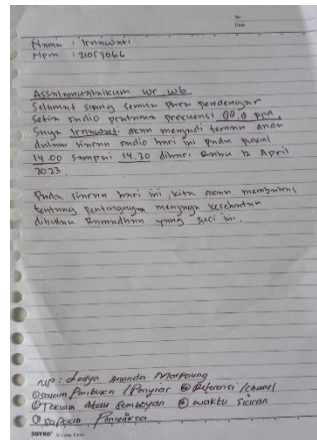 No
Date
Nama : Irmawati
Npm : 21053066
Assalamualaikum wr wb
Selamat siang semua para pendengar
setia radio pratama frekuensi 00.0 fm,
Saya Irmawati akan menjadi teman anda
dalam siaran radio hari ini pada pukul
14.00 sampai 14.30 dihari Rabu 12 April
2023.
Pada siaran hari ini, kita akan membahas
tentang pentingnya menjaga kesehatan
dibulan Ramadhan yang suci ini.
NP : Ananda Marpaung
① salam Pembuka / Penyiar ④ Referensi / chanel
② Teman atau ⑤ waktu siaran
③ sapaan
JOYKO